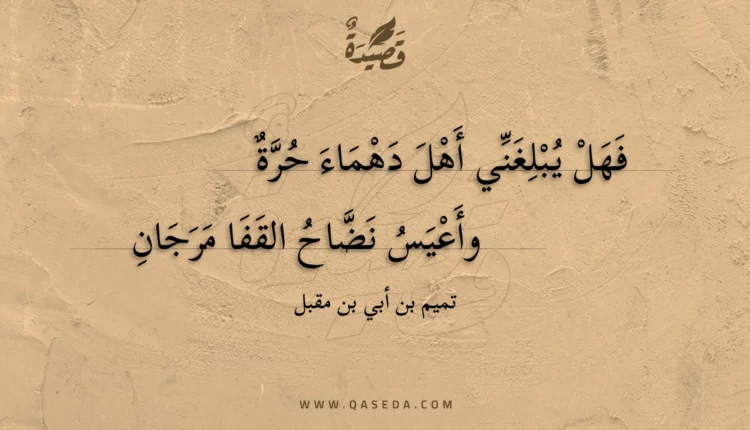 قَصِيدَةٌ
فَهَلْ يُبْلِغَنِّي أَهْلَ دَهْمَاءَ حُرَّةٌ
وأَعْيَسُ نَضَّاحُ القَفَا مَرَجَانِ
تميم بن أبي بن مقبل
WWW.QASEDA.COM